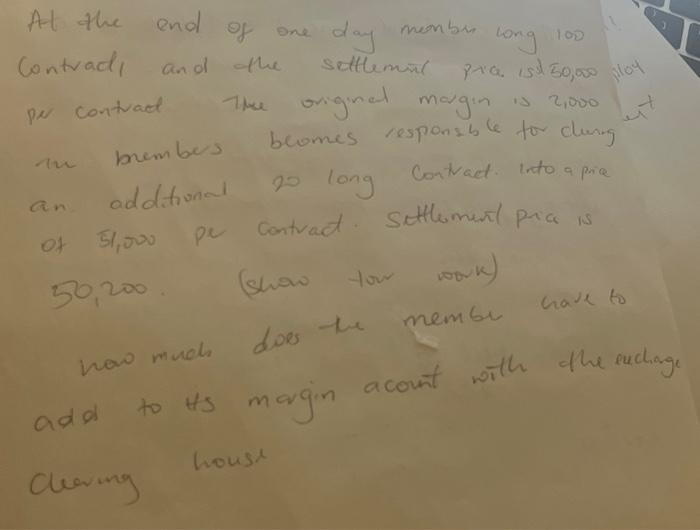 At the end of one day member long 100
Contracts and the settlement price is $ 50,000
per contract The original margin is 2,000
members becomes responsible for clearing
an additional 20 long Contract. Into a price
of 51,000 per contract. Settlement price is
50,200. (show your work)
how much does the member have to
add to its margin acount with the exchage
Clearing house